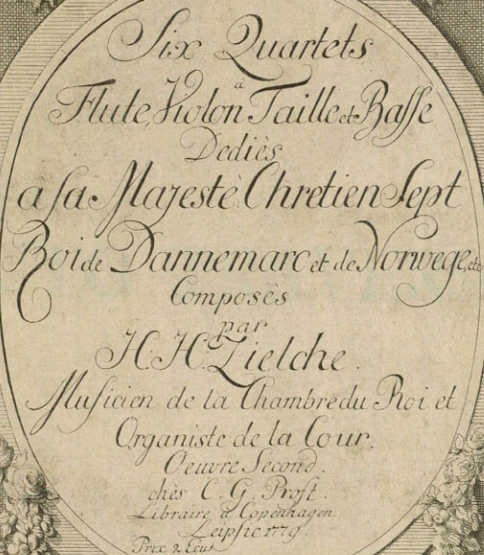 Six Quartets
à
Flute, Violon, Taille et Basse
Dediès
a sa Majestè Chretien Sept
Roi de Dannemarc et de Norwege, etc
Composès
par
H. H. Zielche.
Musicien de la Chambre du Roi et
Organiste de la Cour.
Oeuvre Second.
chès C. G. Proft.
Libraire à Copenhagen
Leipsic 1779.
Prix 2 Ecus